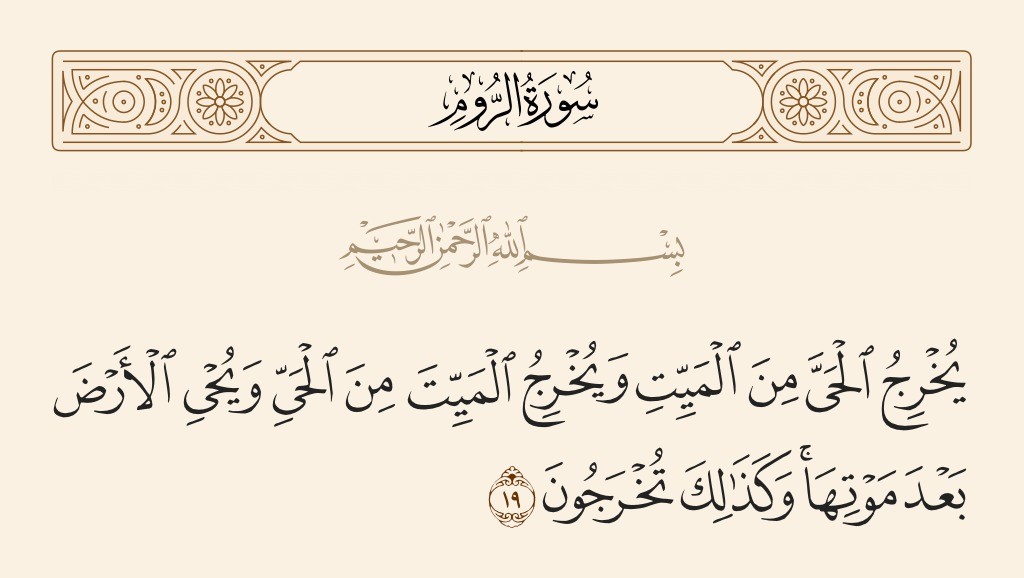 سُورَةُ الرُّومِ
بِسْمِ ٱللَّهِ ٱلرَّحْمَٰنِ ٱلرَّحِيمِ
يُخْرِجُ ٱلْحَىَّ مِنَ ٱلْمَيِّتِ وَيُخْرِجُ ٱلْمَيِّتَ مِنَ ٱلْحَىِّ وَيُحْىِ ٱلْأَرْضَ
بَعْدَ مَوْتِهَا ۚ وَكَذَٰلِكَ تُخْرَجُونَ ١٩